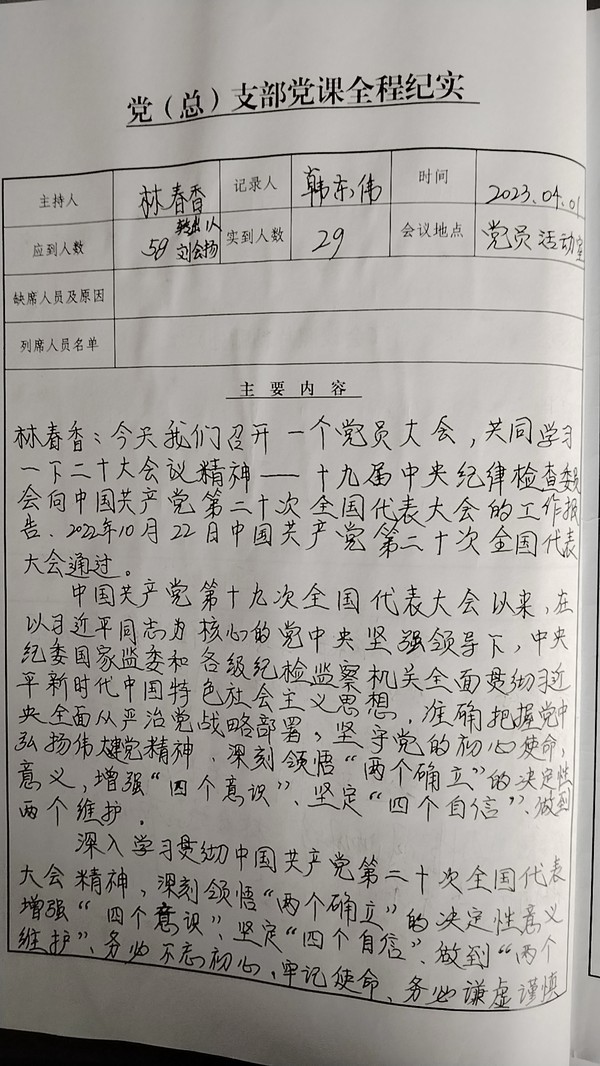 党（总）支部党课全程纪实
主持人 林春香 记录人 韩东伟 时间 2023.04.01
应到人数 58 转出1人 刘会扬 实到人数 29 会议地点 党员活动室
缺席人员及原因
列席人员名单
主要内容
林春香：今天我们召开一个党员大会，共同学习
一下二十大会议精神——十九届中央纪律检查委员
会向中国共产党第二十次全国代表大会的工作报
告、2022年10月22日中国共产党第二十次全国代表
大会通过。
中国共产党第十九次全国代表大会以来，在
以习近平同志为核心的党中央坚强领导下，中央
纪委国家监委和各级纪检监察机关全面贯彻习近
平新时代中国特色社会主义思想，准确把握党中
央全面从严治党战略部署，坚守党的初心使命，
弘扬伟大建党精神，深刻领悟“两个确立”的决定性
意义，增强“四个意识”、坚定“四个自信”、做到
两个维护。
深入学习贯彻中国共产党第二十次全国代表
大会精神，深刻领悟“两个确立”的决定性意义
增强“四个意识”、坚定“四个自信”、做到“两个
维护”、务必不忘初心，牢记使命、务必谦虚谨慎